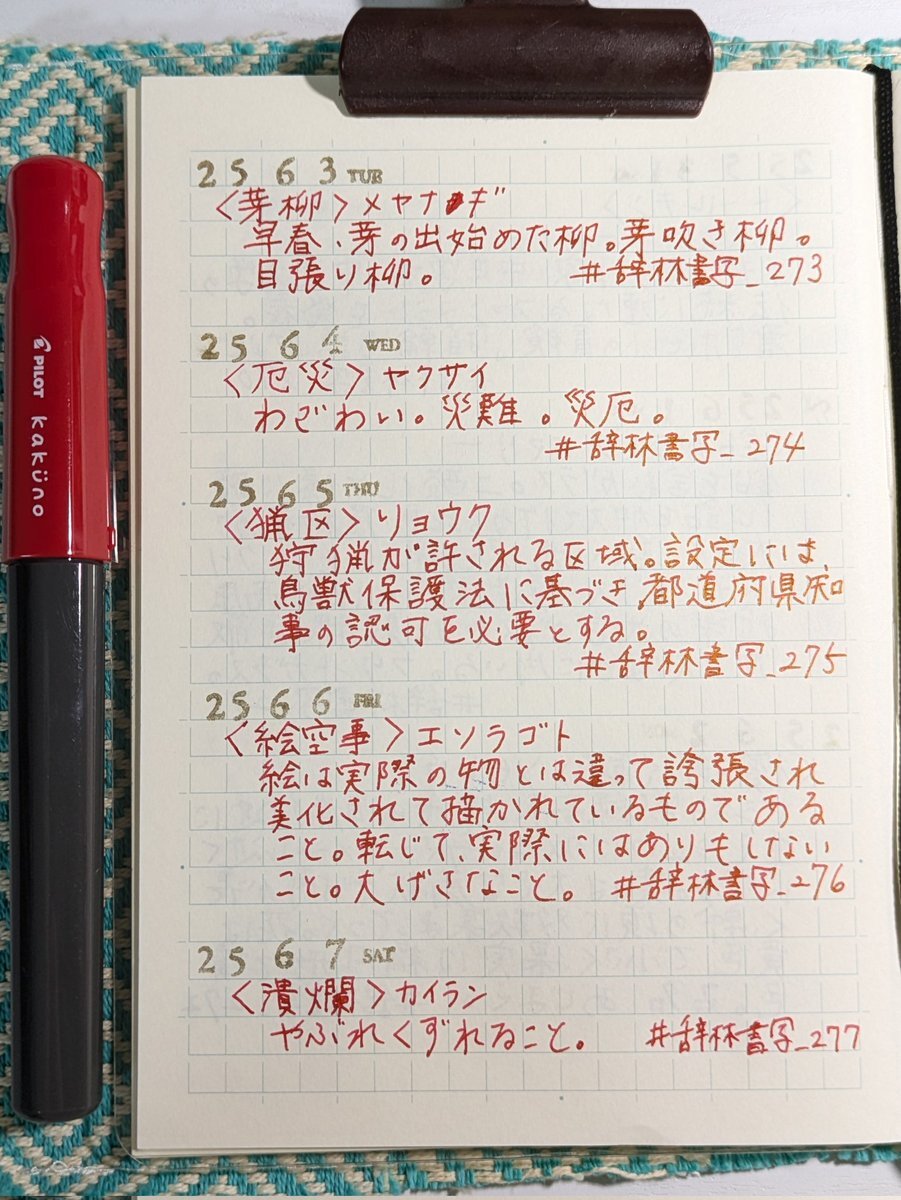 25 6 3 TUE
〈芽柳〉メヤナギ
早春、芽の出始めた柳。芽吹き柳。
目張り柳。 #辞林書写_273
25 6 4 WED
〈厄災〉ヤクサイ
わざわい。災難。災厄。
#辞林書写_274
25 6 5 THU
〈猟区〉リョウク
狩猟が許される区域。設定には、
鳥獣保護法に基づき都道府県知
事の認可を必要とする。
#辞林書写_275
25 6 6 FRI
〈絵空事〉エソラゴト
絵は実際の物とは違って誇張され
美化されて描かれているものである
こと。転じて、実際にはありもしない
こと。大げさなこと。 #辞林書写_276
25 6 7 SAT
〈潰爛〉カイラン
やぶれくずれること。 #辞林書写_277
PILOT
kaküno